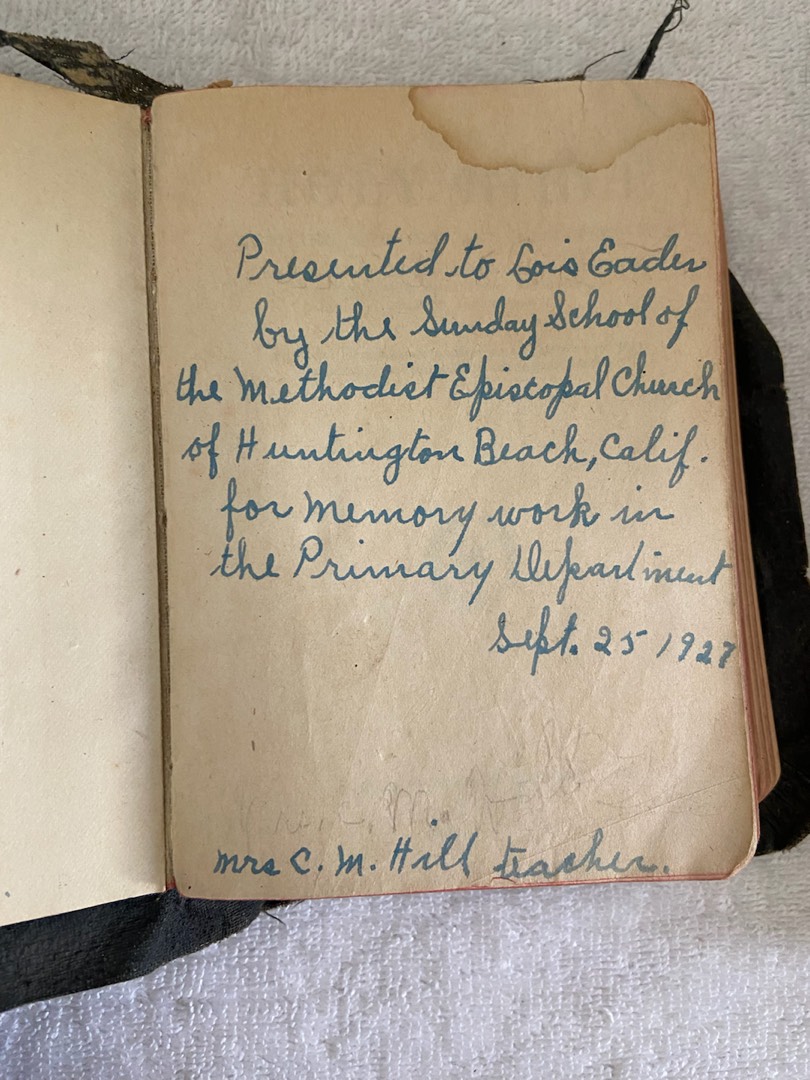 Presented to Lois Eader
by the Sunday School of
the Methodist Episcopal Church
of Huntington Beach, Calif.
for memory work in
the Primary Department
Sept. 25 1927
Mrs C. M. Hill teacher.